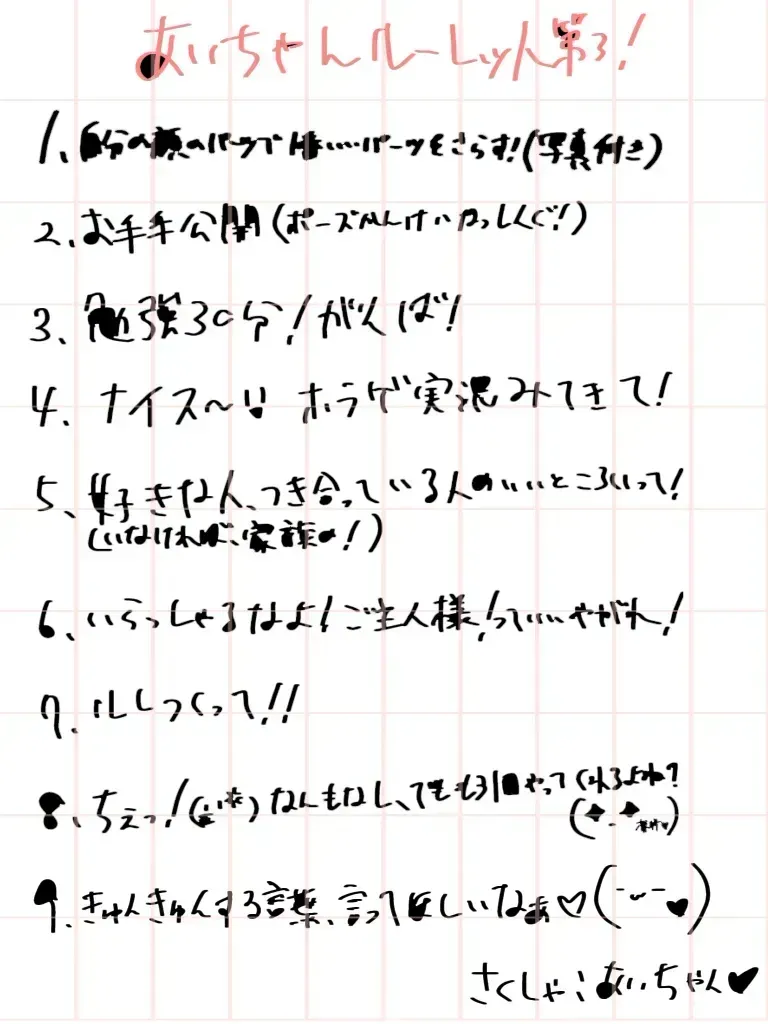 あいちゃんルーレット第3!
1、自分の顔のパーツで1番いいパーツをさらす!(写真付き)
2、お手手公開(ポーズかんけいなっしんぐ!)
3、勉強30分!がんば!
4、ナイス〜!! ホラゲ実況みてきて!
5、好きな人、つき合っている人のいいところいって!
(いなければ、家族の!)
6、いらっしゃるなよ!ご主人様!っていいやがれ!
7、ルレつくって!!
8、ちぇっ! なんもなし、でももう1回やってくれるよね?
9、きゅんきゅんする言葉、言ってほしいなぁ♡
さくしゃ:あいちゃん♥